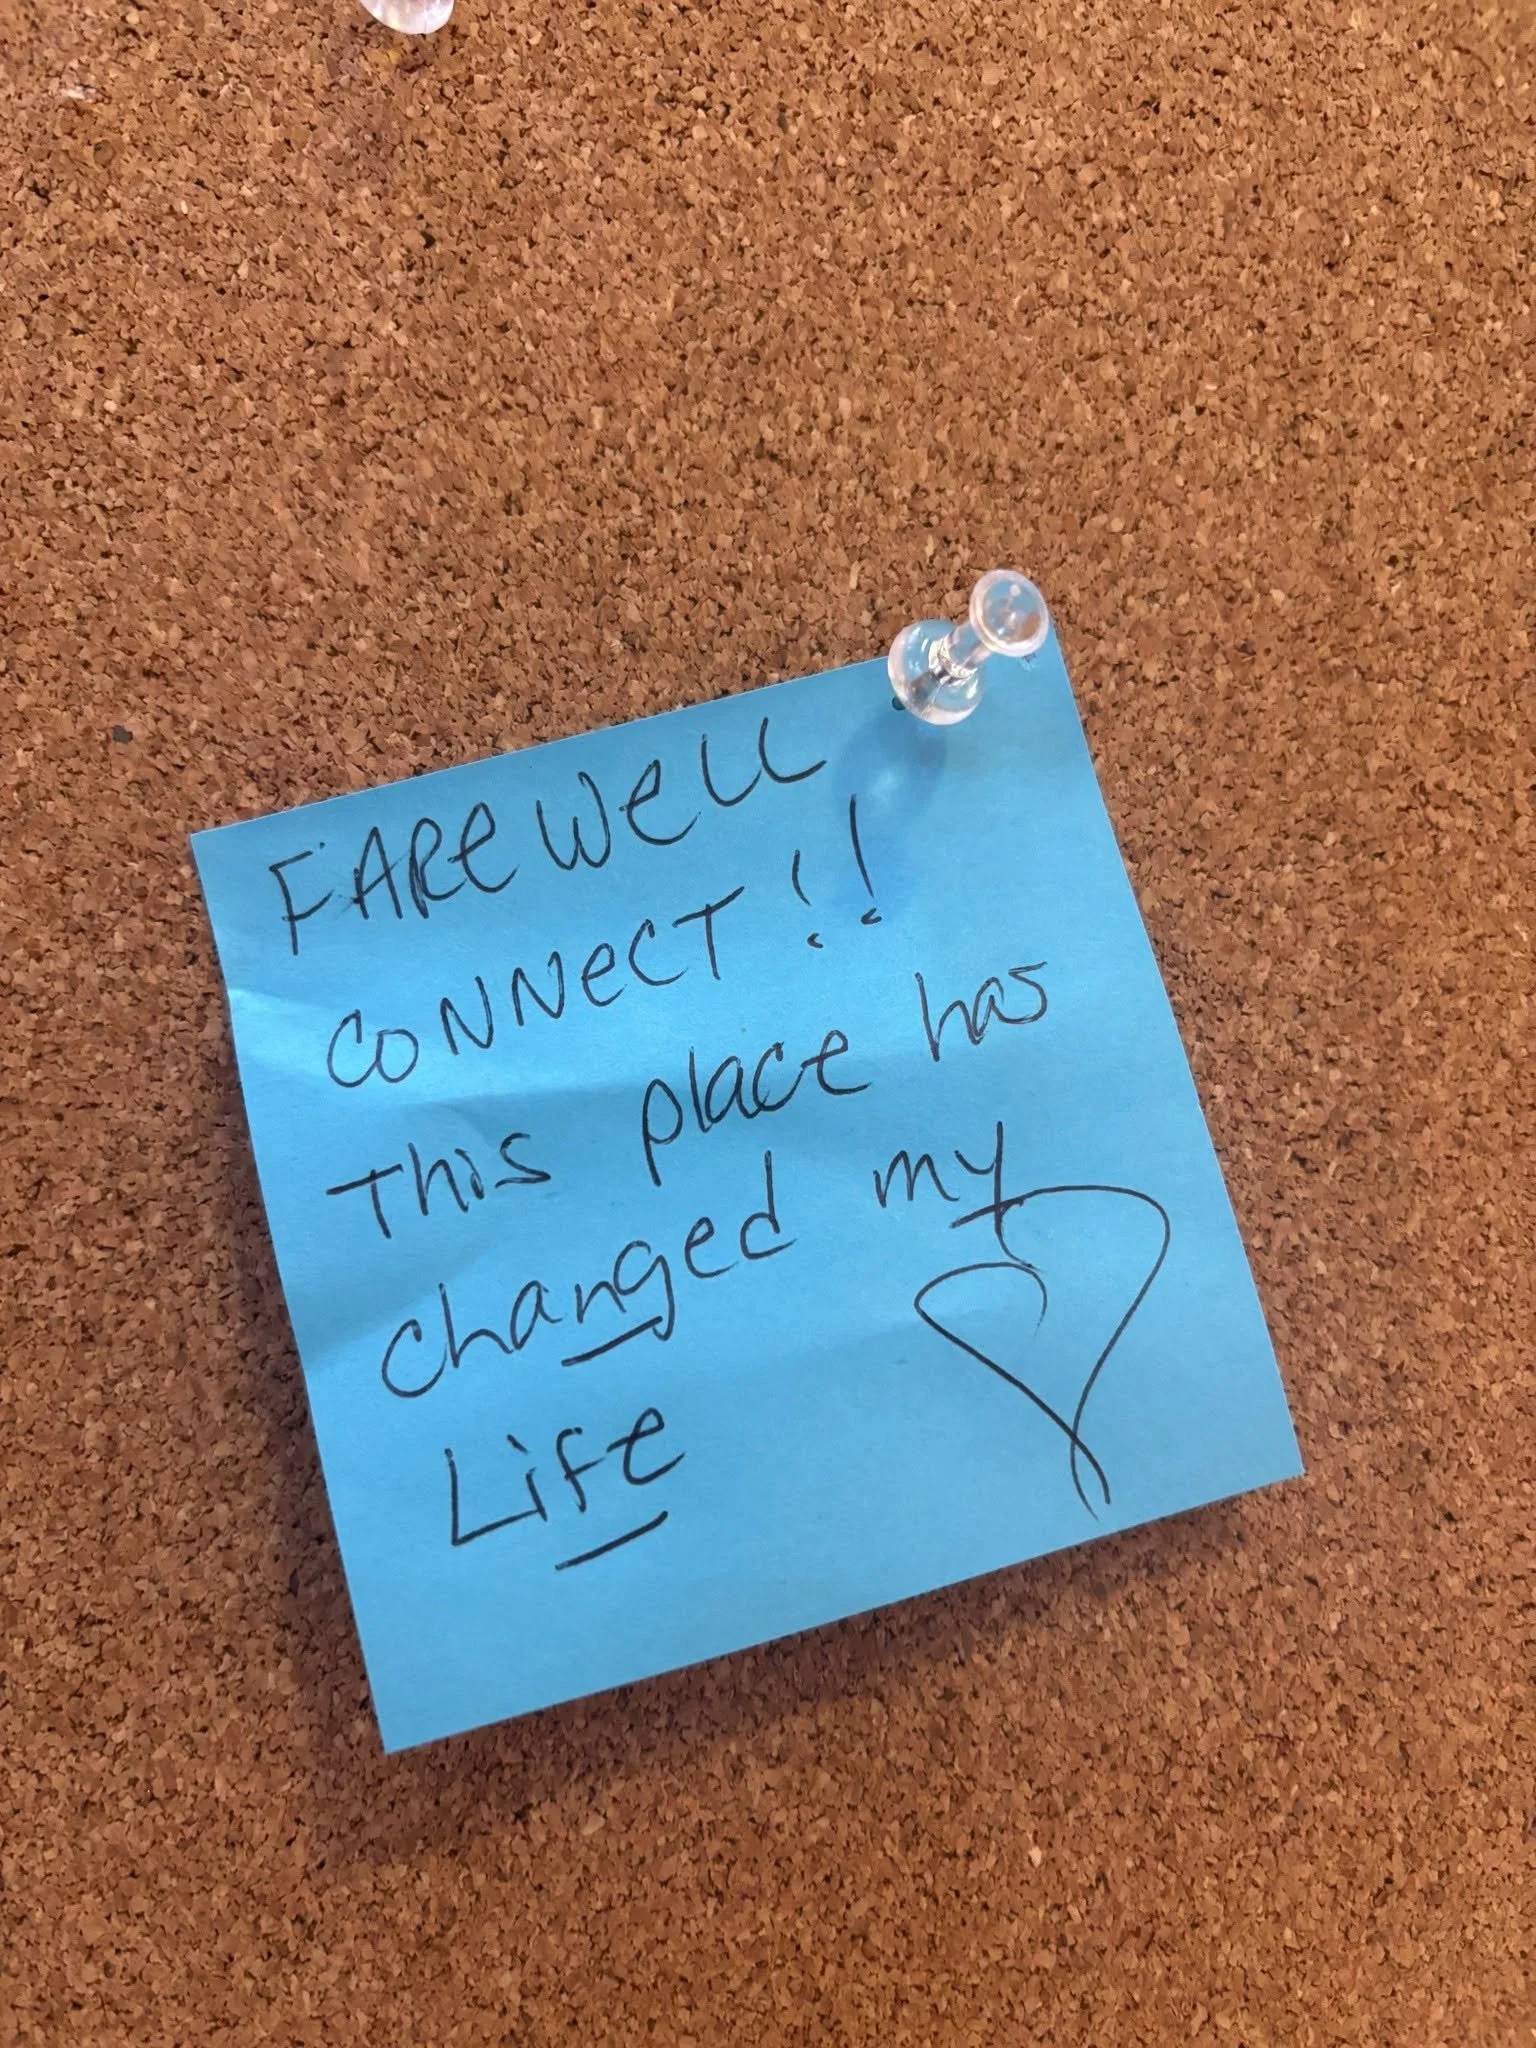 FAReWeLL
CONNeCT!!
This place has
changed my
Life